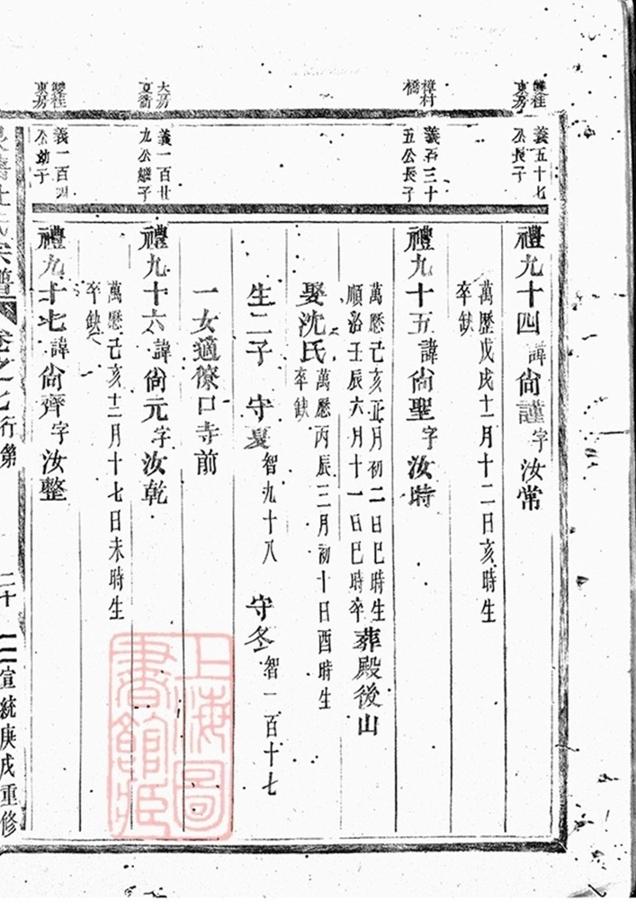 雙桂東房
義五十七公長子
禮九十四 諱尙謹字汝常
萬歷戊戌十一月十二日亥時生
卒缺
樟村橋
義百三十五公長子
禮九十五 諱尙聖字汝時
萬歷己亥正月初二日巳時生
順治壬辰六月十一日巳時卒 葬殿後山
娶沈氏 萬歷丙辰三月初十日酉時生
卒缺
生二子 守夏 智九十八 守冬 智一百十七
一女適 口寺前
大房
義一百廿九公 子
禮九十六 諱尙元字汝乾
萬歷己亥十二月十七日未時生
卒缺
雙桂東房
義一百 公幼子
禮九十七 諱尙齊字汝整
宗譜 卷之七 行第 二十 宣統庚戌重修
上海圖書館藏